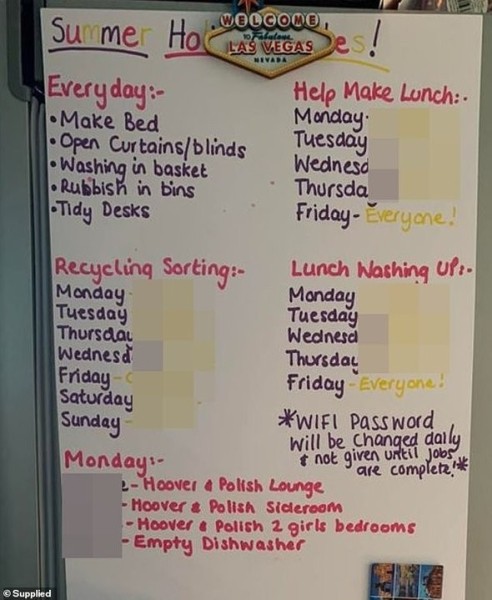 Summer Ho es!
WELCOME
TO Fabulous
LAS VEGAS
NEVADA
Everyday:-
•Make Bed
•Open Curtains/blinds
•Washing in basket
•Rubbish in bins
•Tidy Desks
Help Make Lunch:-
Monday-
Tuesday
Wednesd
Thursda
Friday- Everyone!
Recycling Sorting:-
Monday-
Tuesday
Thursday
Wednesd
Friday-
Saturday
Sunday-
Lunch Washing Up:-
Monday
Tuesday
Wednesd
Thursday
Friday-Everyone!
*WIFI PASSWORD
will be changed daily
& not given until jobs
are complete!*
Monday:-
e-Hoover & Polish Lounge
-Hoover & Polish Sideroom
-Hoover & Polish 2 girls bedrooms
-Empty Dishwasher
©Supplied